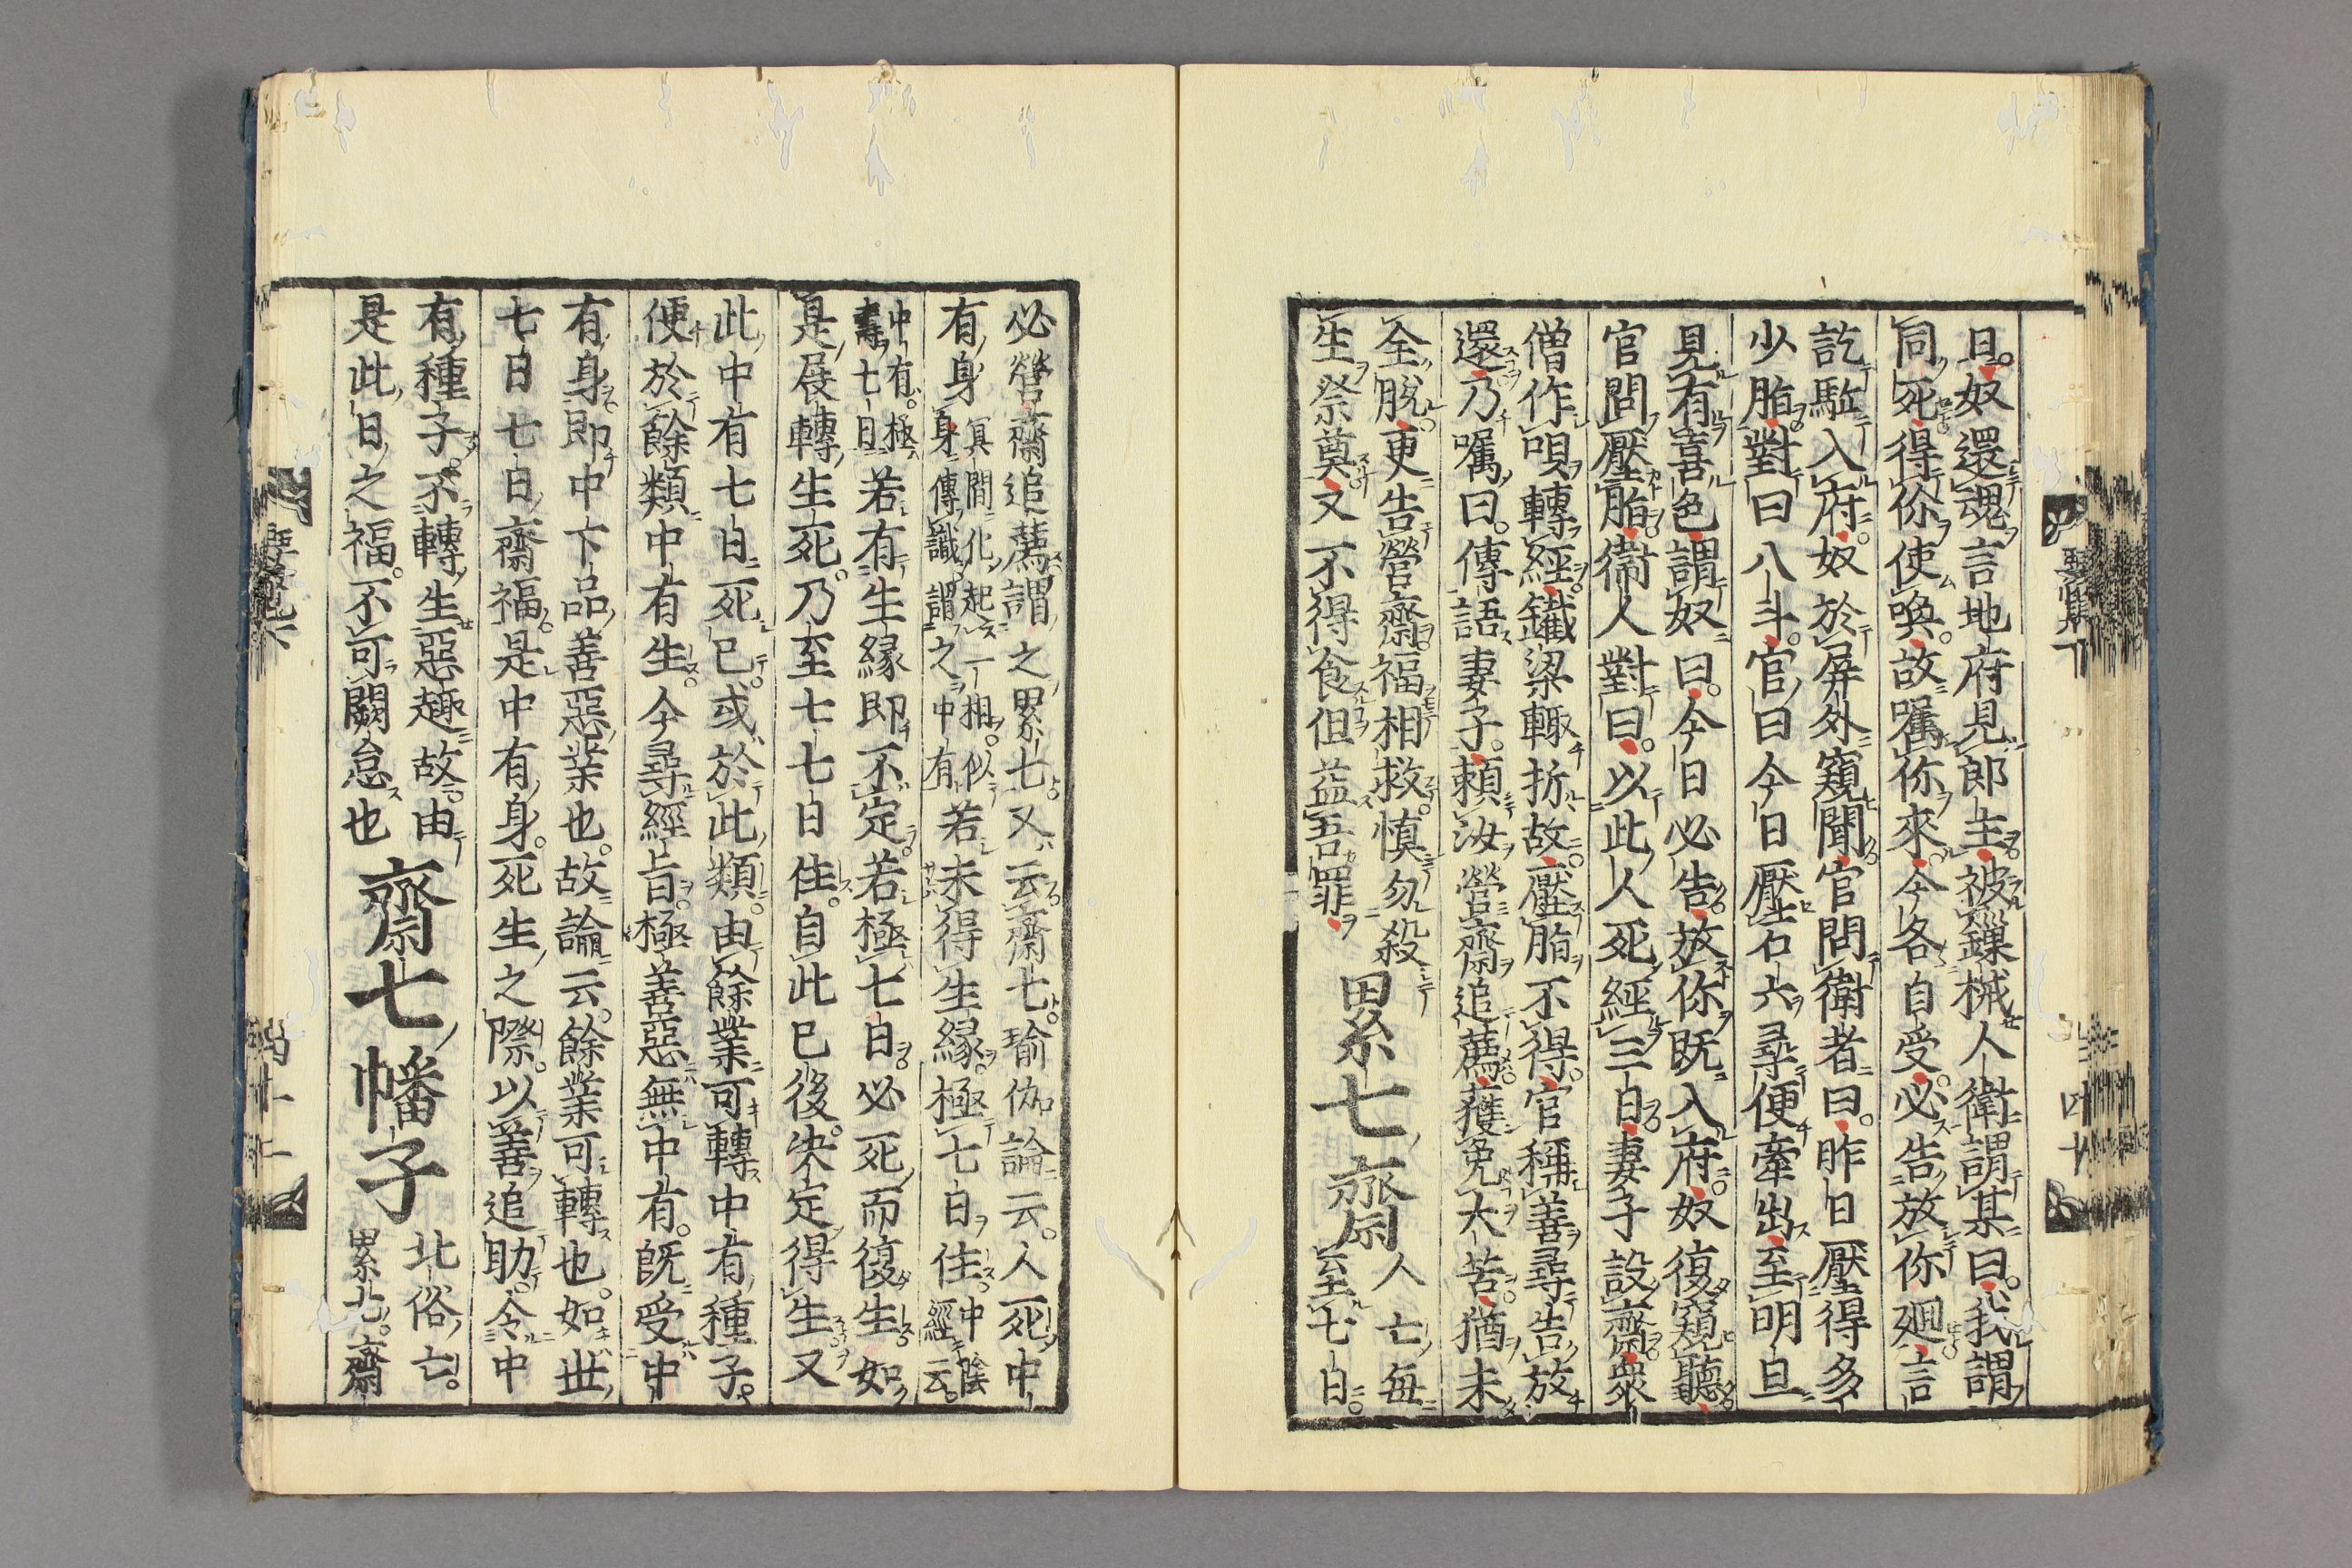 日。奴還魂言地府見郎主被鏁械人衛謂某曰。我謂
同死得你使喚。故嘱你來。今各自受。必告放你廻。言
訖駈入府。奴於屏外窺聞官問衛者曰。昨日壓得多
少脂對曰八斗。官曰今日壓石六尋便牽出至明旦
見有喜色謂奴曰。今日必告放你既入府。奴復窺聽
官問壓脂衛人對曰。以此人死經三日。妻子設齋衆
僧作唄轉經。鐵梁輙折故壓脂不得。官稱善尋告放
還乃嘱曰。傳語妻子。頼汝營齋追薦獲免大苦。猶未
全脫。更告營齋福相救。慎勿殺
生祭奠。又不得食但益吾罪
累七齋
人亡每
至七日。
必營齋追薦謂之累七。又云齋七。瑜伽論云。人死中
有身
冥間化起一相。似
身傳識謂之中有
若未得生緣。極七日住。
中陰
經云。
中有。極
壽七日
若有生緣即不定。若極七日。必死而復生。如
是展轉生死。乃至七七日住。自此已後。決定得生又
此中有七日死已。或於此類。由餘業可轉中有種子。
便於餘類中有生。今尋經旨。極善惡無中有。既受中
有身即中下品善惡業也。故論云。餘業可轉也。如世
七日七日齋福。是中有身。死生之際。以善追助。令中
有種子。不轉生惡趣故。由
是此日之福。不可闕怠也
齋七幡子
北俗亡。
累七。齋